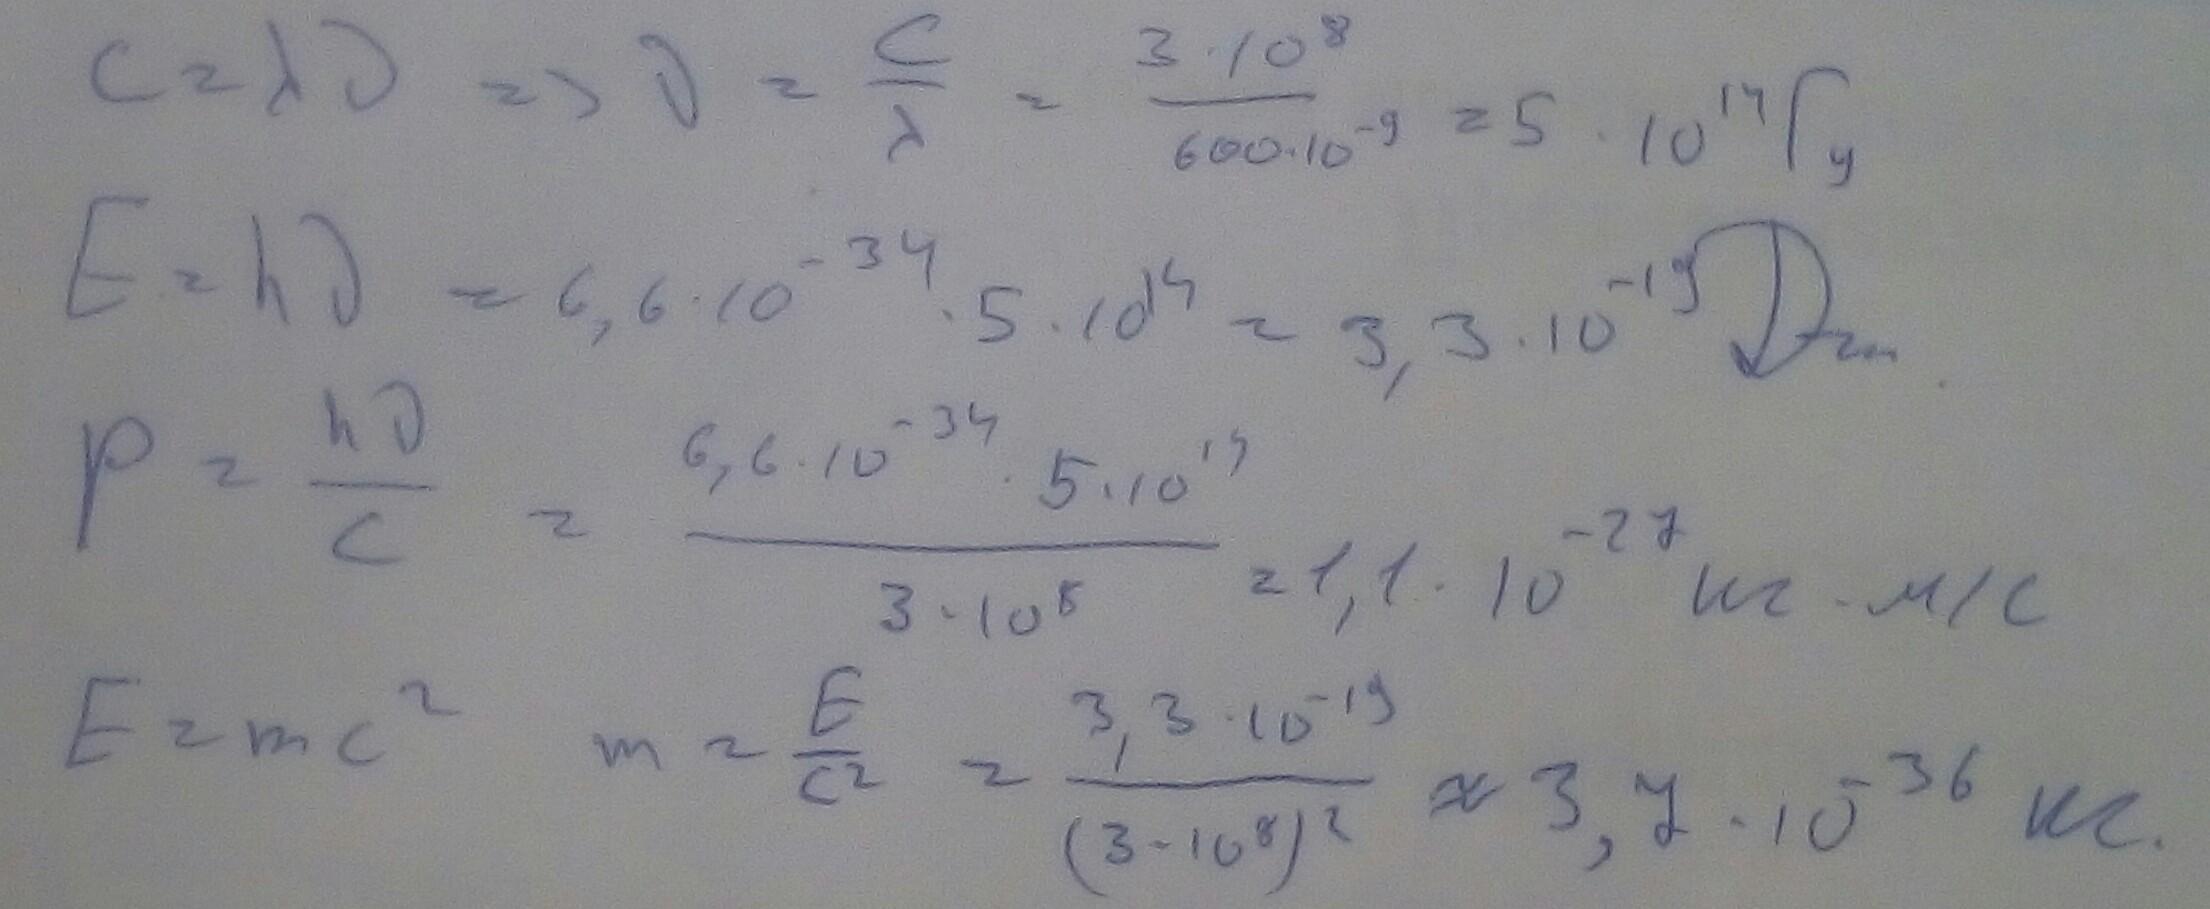 c = λν => ν = c/λ = 3·10⁸/600·10⁻⁹ = 5·10¹⁴ Гц
E = hν = 6,6·10⁻³⁴·5·10¹⁴ = 3,3·10⁻¹⁹ Дж.
p = hν/c = 6,6·10⁻³⁴·5·10¹⁴/3·10⁸ = 1,1·10⁻²⁷ кг·м/с
E = mc² m = E/c² = 3,3·10⁻¹⁹/(3·10⁸)² ≈ 3,7·10⁻³⁶ кг.